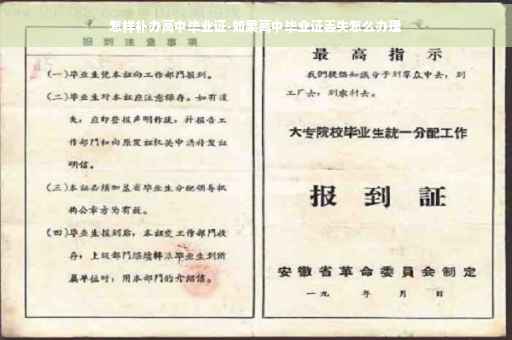 怎样补办高中毕业证-如果高中毕业证丢失怎么办理
报到注意事项
(一)毕业生凭本证向工作部门报到。
(二)毕业生对本证应注意保存。如有遗
失，应即登报声明作废，并报告工
作部门和向原发证机关申请补发证
明信。
(三)本证必须加盖省毕业生分配领导机
构公章方为有效。
(四)毕业生报到后，本证交工作部门收
存；上级部门
毕业生到所
属单位时，用本部门的介绍信。
最高指示
我们提倡知识分子到群众中去，到
工厂去，到农村去。
大专院校毕业生统一分配工作
报到証
安徽省革命委員会制定
一九 年 月 日